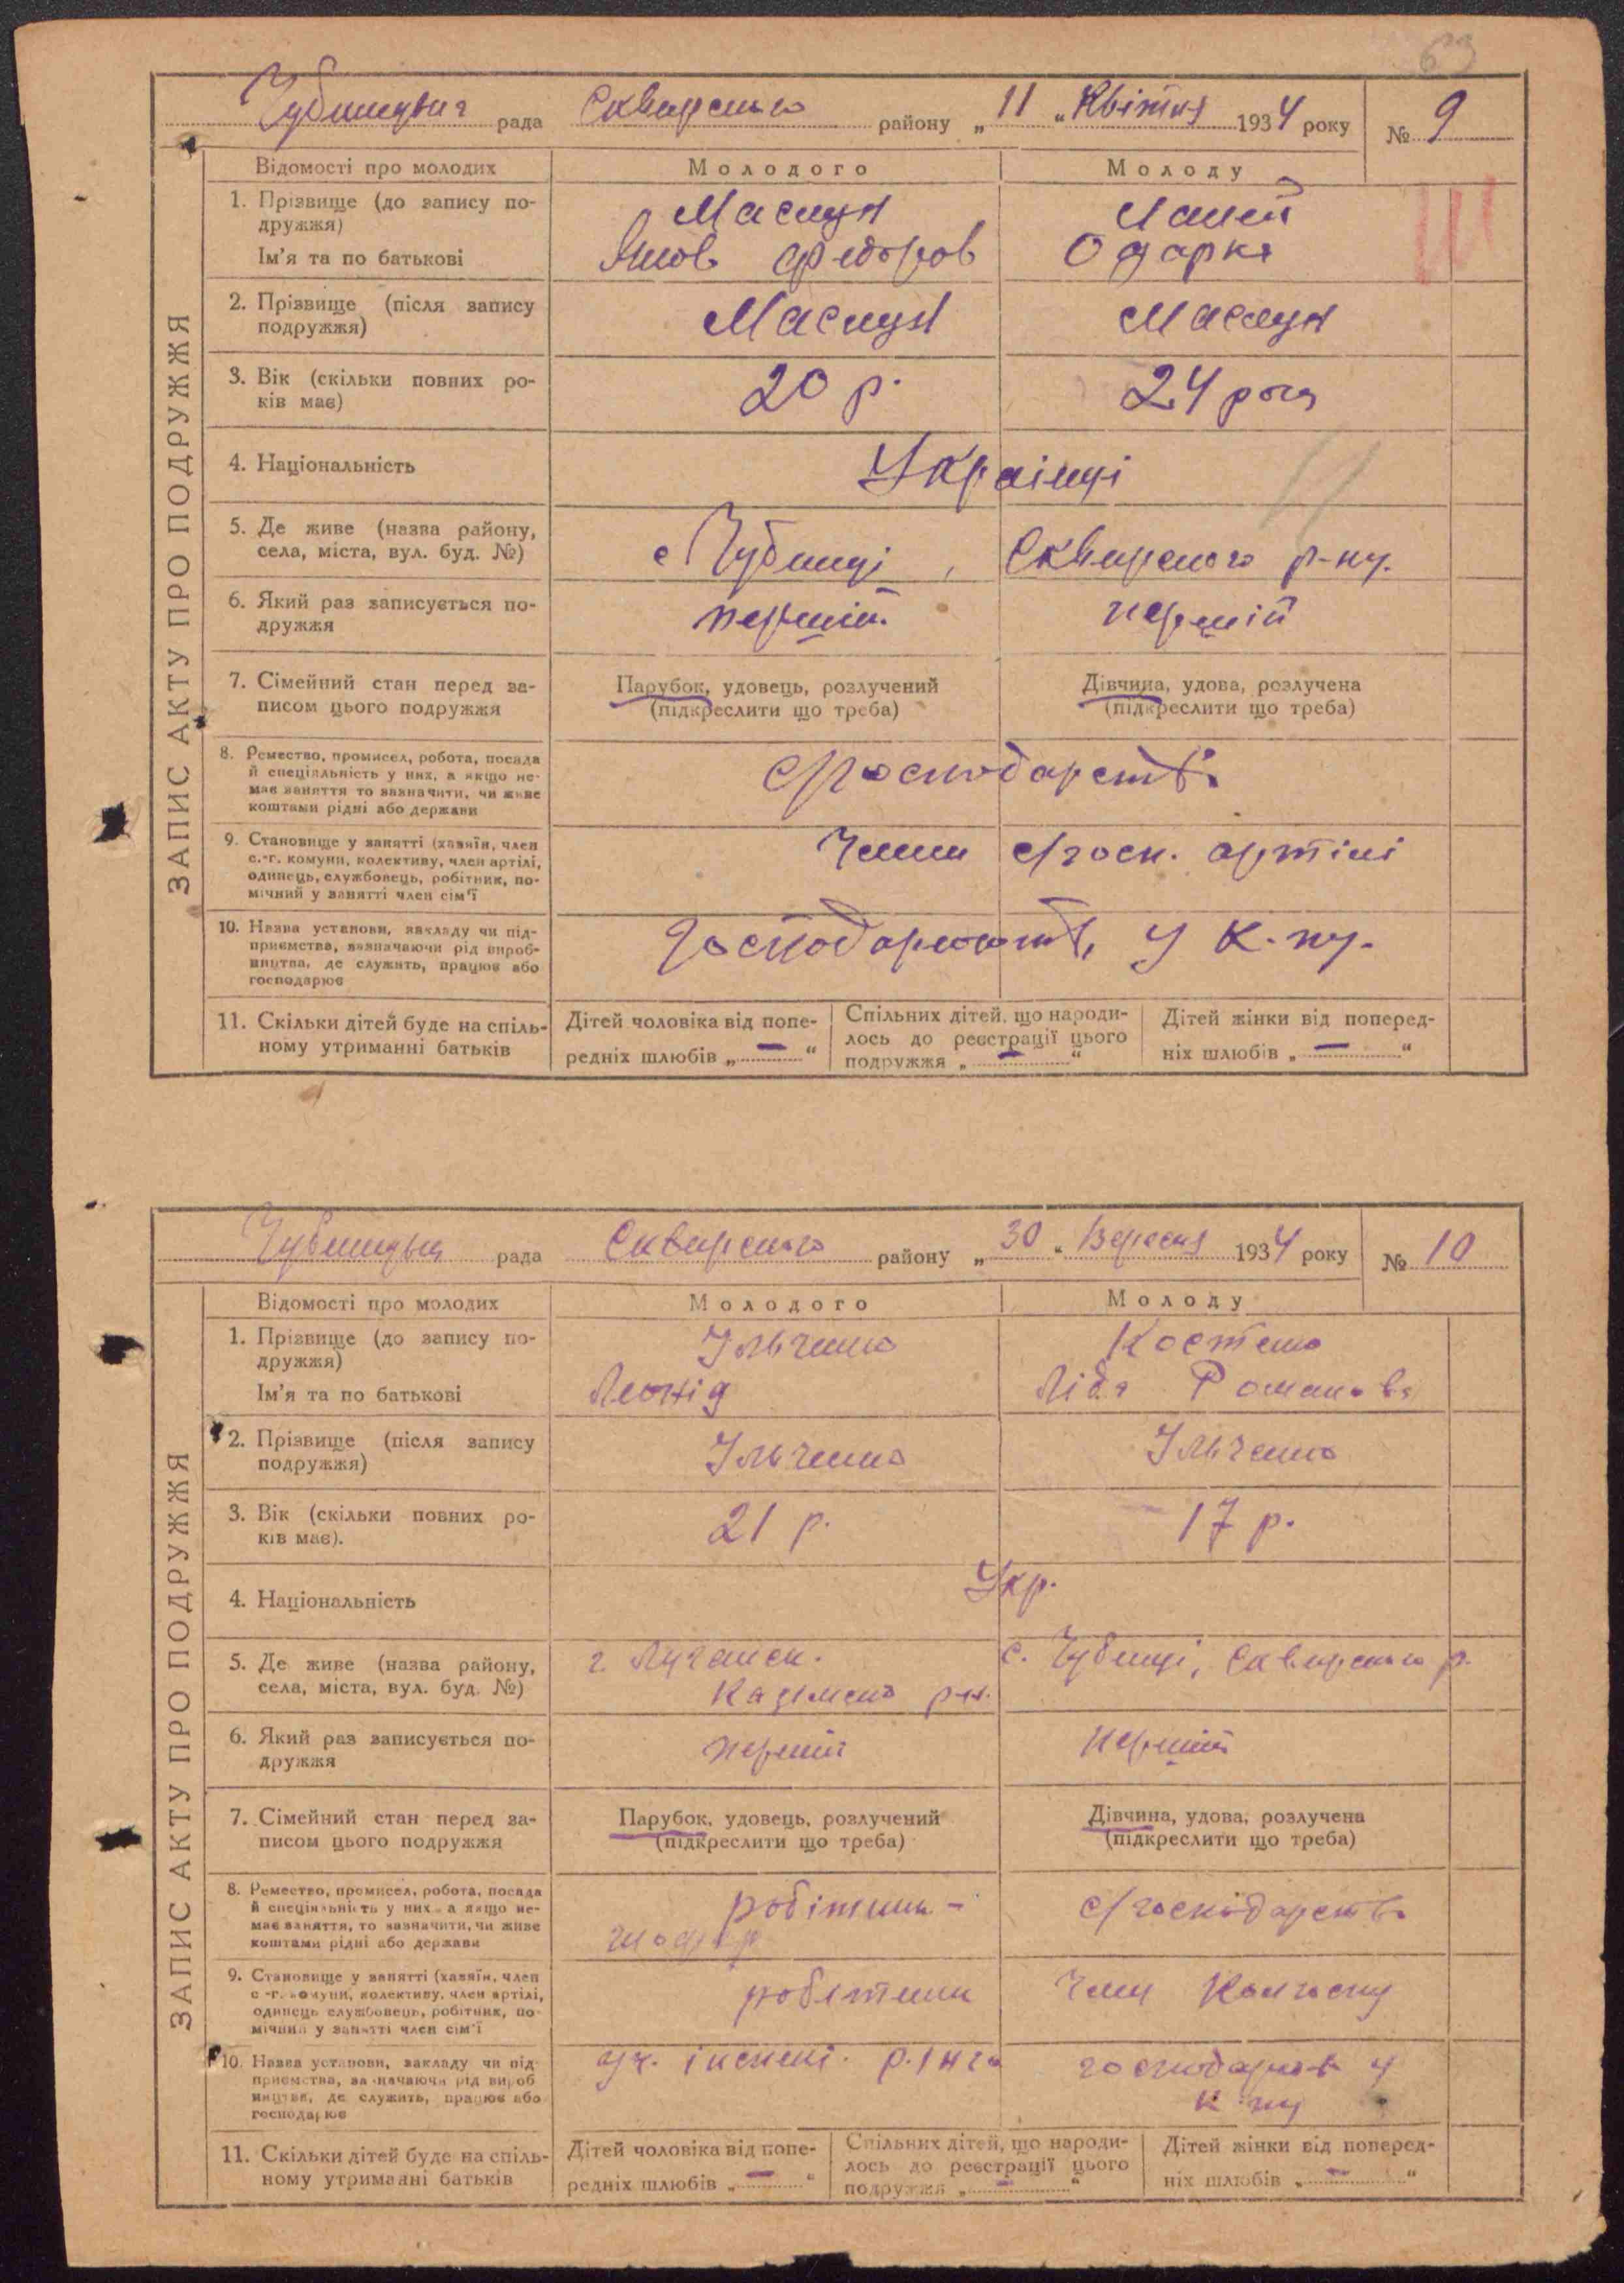 63
рада Сквирського району „11“ Квітня 1934 року № 9
ЗАПИС АКТУ ПРО ПОДРУЖЖЯ
Відомості про молодих
Молодого
Молоду
1. Прізвище (до запису по-
дружжя)
Ім'я та по батькові
Яков Федоров
Одарка
2. Прізвище (після запису
подружжя)
3. Вік (скільки повних ро-
ків має)
20 р.
24 роки
4. Національність
Українці
5. Де живе (назва району,
села, міста, вул. буд. №)
с Чубинці, Сквирського р-ну.
6. Який раз записується по-
дружжя
першій
першій
7. Сімейний стан перед за-
писом цього подружжя
Парубок, удовець, розлучений
(підкреслити що треба)
Дівчина, удова, розлучена
(підкреслити що треба)
8. Ремество, промисел, робота, посада
й спеціяльність у них, а якщо не-
має заняття то зазначити, чи живе
коштами рідні або держави
с/господарств
9. Становище у занятті (хазяїн, член
с.-г. комуни, колективу, член артілі,
одинець, службовець, робітник, по-
мічний у занятті член сім'ї
Члени с/госп. артілі
10. Назва установи, закладу чи під-
приємства, зазначаючи рід вироб-
ництва, де служить, працює або
господарює
у к-пу.
11. Скільки дітей буде на спіль-
ному утриманні батьків
Дітей чоловіка від попе-
редніх шлюбів „ — “
Спільних дітей, що народи-
лось до реєстрації цього
подружжя „ — “
Дітей жінки від поперед-
ніх шлюбів „ — “
Чубинецька рада Сквирського району „30“ Вересня 1934 року № 10
ЗАПИС АКТУ ПРО ПОДРУЖЖЯ
Відомості про молодих
Молодого
Молоду
1. Прізвище (до запису по-
дружжя)
Ім'я та по батькові
Ільченко
Леонід
Костенко
Ліда Романовa
2. Прізвище (після запису
подружжя)
Ільченко
Ільченко
3. Вік (скільки повних ро-
ків має).
21 р.
17 р.
4. Національність
Укр.
5. Де живе (назва району,
села, міста, вул. буд. №)
г. Луганск.
р-н.
с. Чубинці, Сквирського р.
6. Який раз записується по-
дружжя
першій
першій
7. Сімейний стан перед за-
писом цього подружжя
Парубок, удовець, розлучений
(підкреслити що треба)
Дівчина, удова, розлучена
(підкреслити що треба)
8. Ремество, промисел, робота, посада
й спеціяльність у них, а якщо не-
має заняття, то зазначити, чи живе
коштами рідні або держави
робітник -
шофер
с/господарств
9. Становище у занятті (хазяїн, член
с.-г. комуни, колективу, член артілі,
одинець службовець, робітник, по-
мічний у занятті член сім'ї
робітник
Член Колгоспу
10. Назва установи, закладу чи під-
приємства, зазначаючи рід вироб-
ництва, де служить, працює або
господарює
господарює у
11. Скільки дітей буде на спіль-
ному утриманні батьків
Дітей чоловіка від попе-
редніх шлюбів „ — “
Спільних дітей, що народи-
лось до реєстрації цього
подружжя „ — “
Дітей жінки від поперед-
ніх шлюбів „ — “